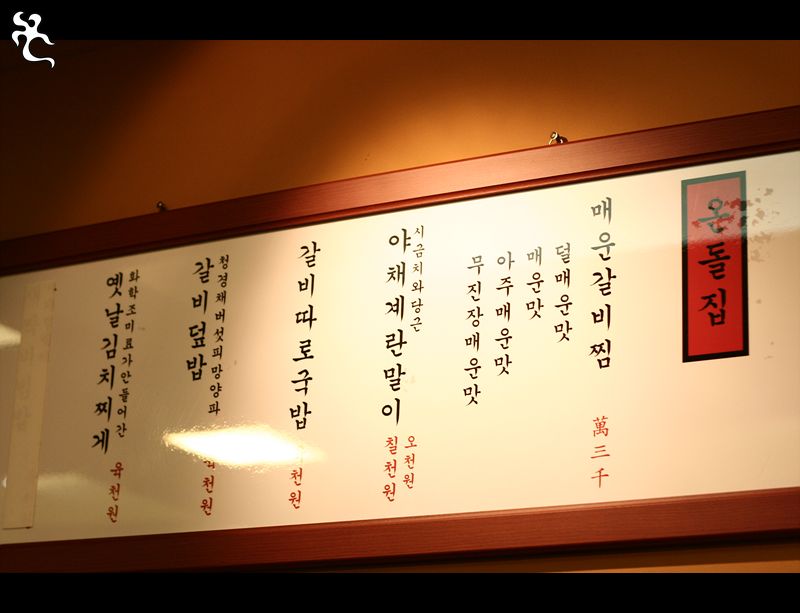 온돌집
매운갈비찜
萬三千
덜매운맛
매운맛
아주매운맛
무진장매운맛
시금치와당근
야채계란말이
오천원
칠천원
갈비따로국밥
천원
청경채버섯피망양파
갈비덮밥
천원
화학조미료가안들어간
옛날김치찌게
육천원